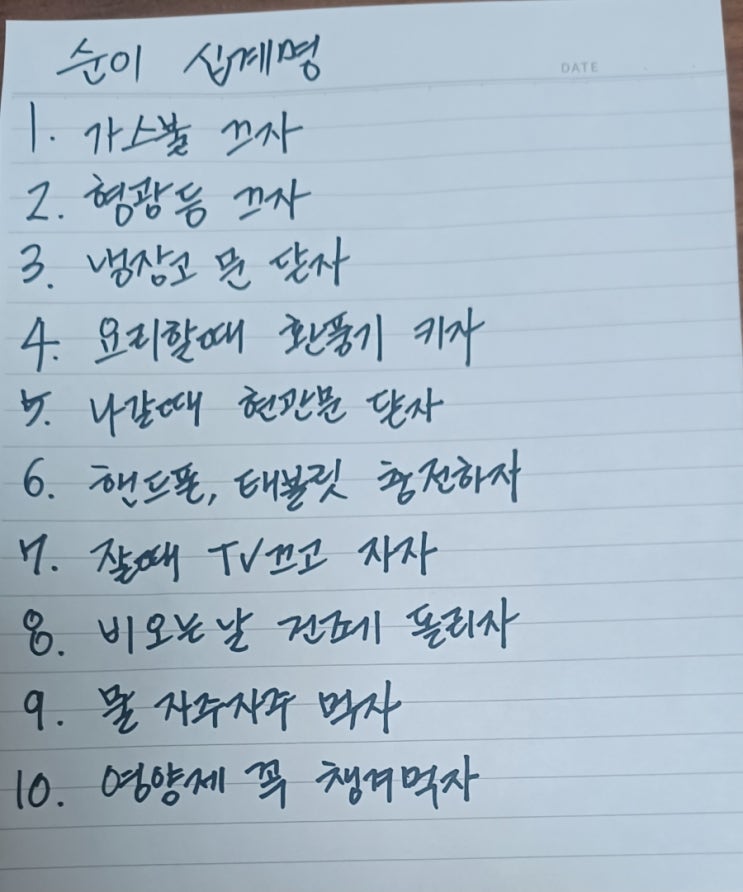 순이 십계명
DATE
1. 가스불 끄자
2. 형광등 끄자
3. 냉장고 문 닫자
4. 요리할때 환풍기 키자
5. 나갈때 현관문 닫자
6. 핸드폰, 태블릿 충전하자
7. 잘때 TV끄고 자자
8. 비오는날 건조기 돌리자
9. 물 자주자주 먹자
10. 영양제 꼭 챙겨먹자